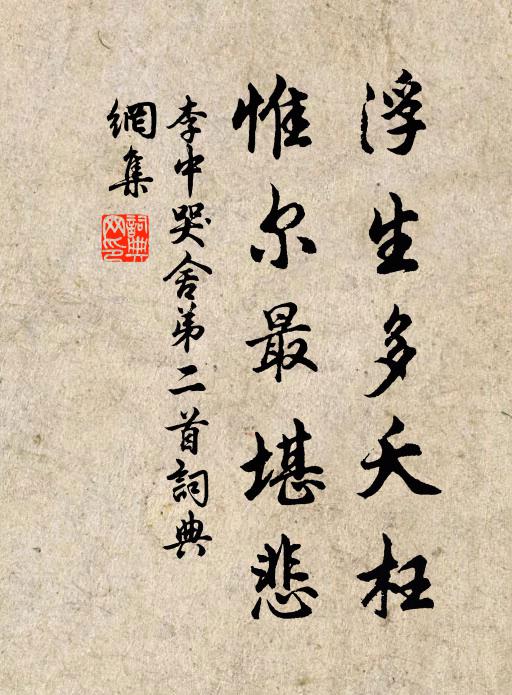 浮生多夭枉
惟尔最堪悲
李中哭舍弟二首詞典
網集
詞典網印